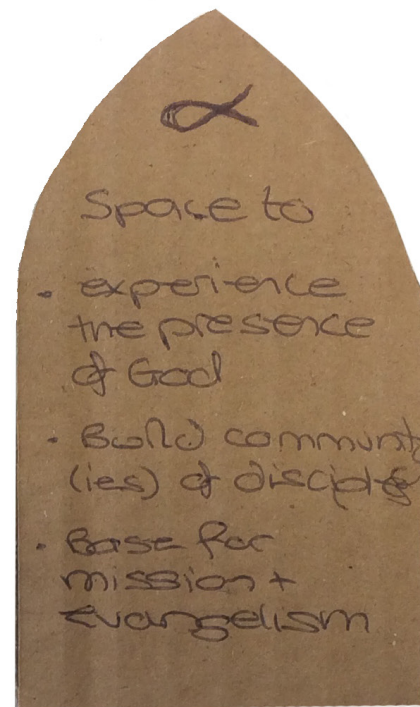 Space to
• experience
the presence
of God
• Build community
(ies) of disciples
• Base for
mission +
evangelism